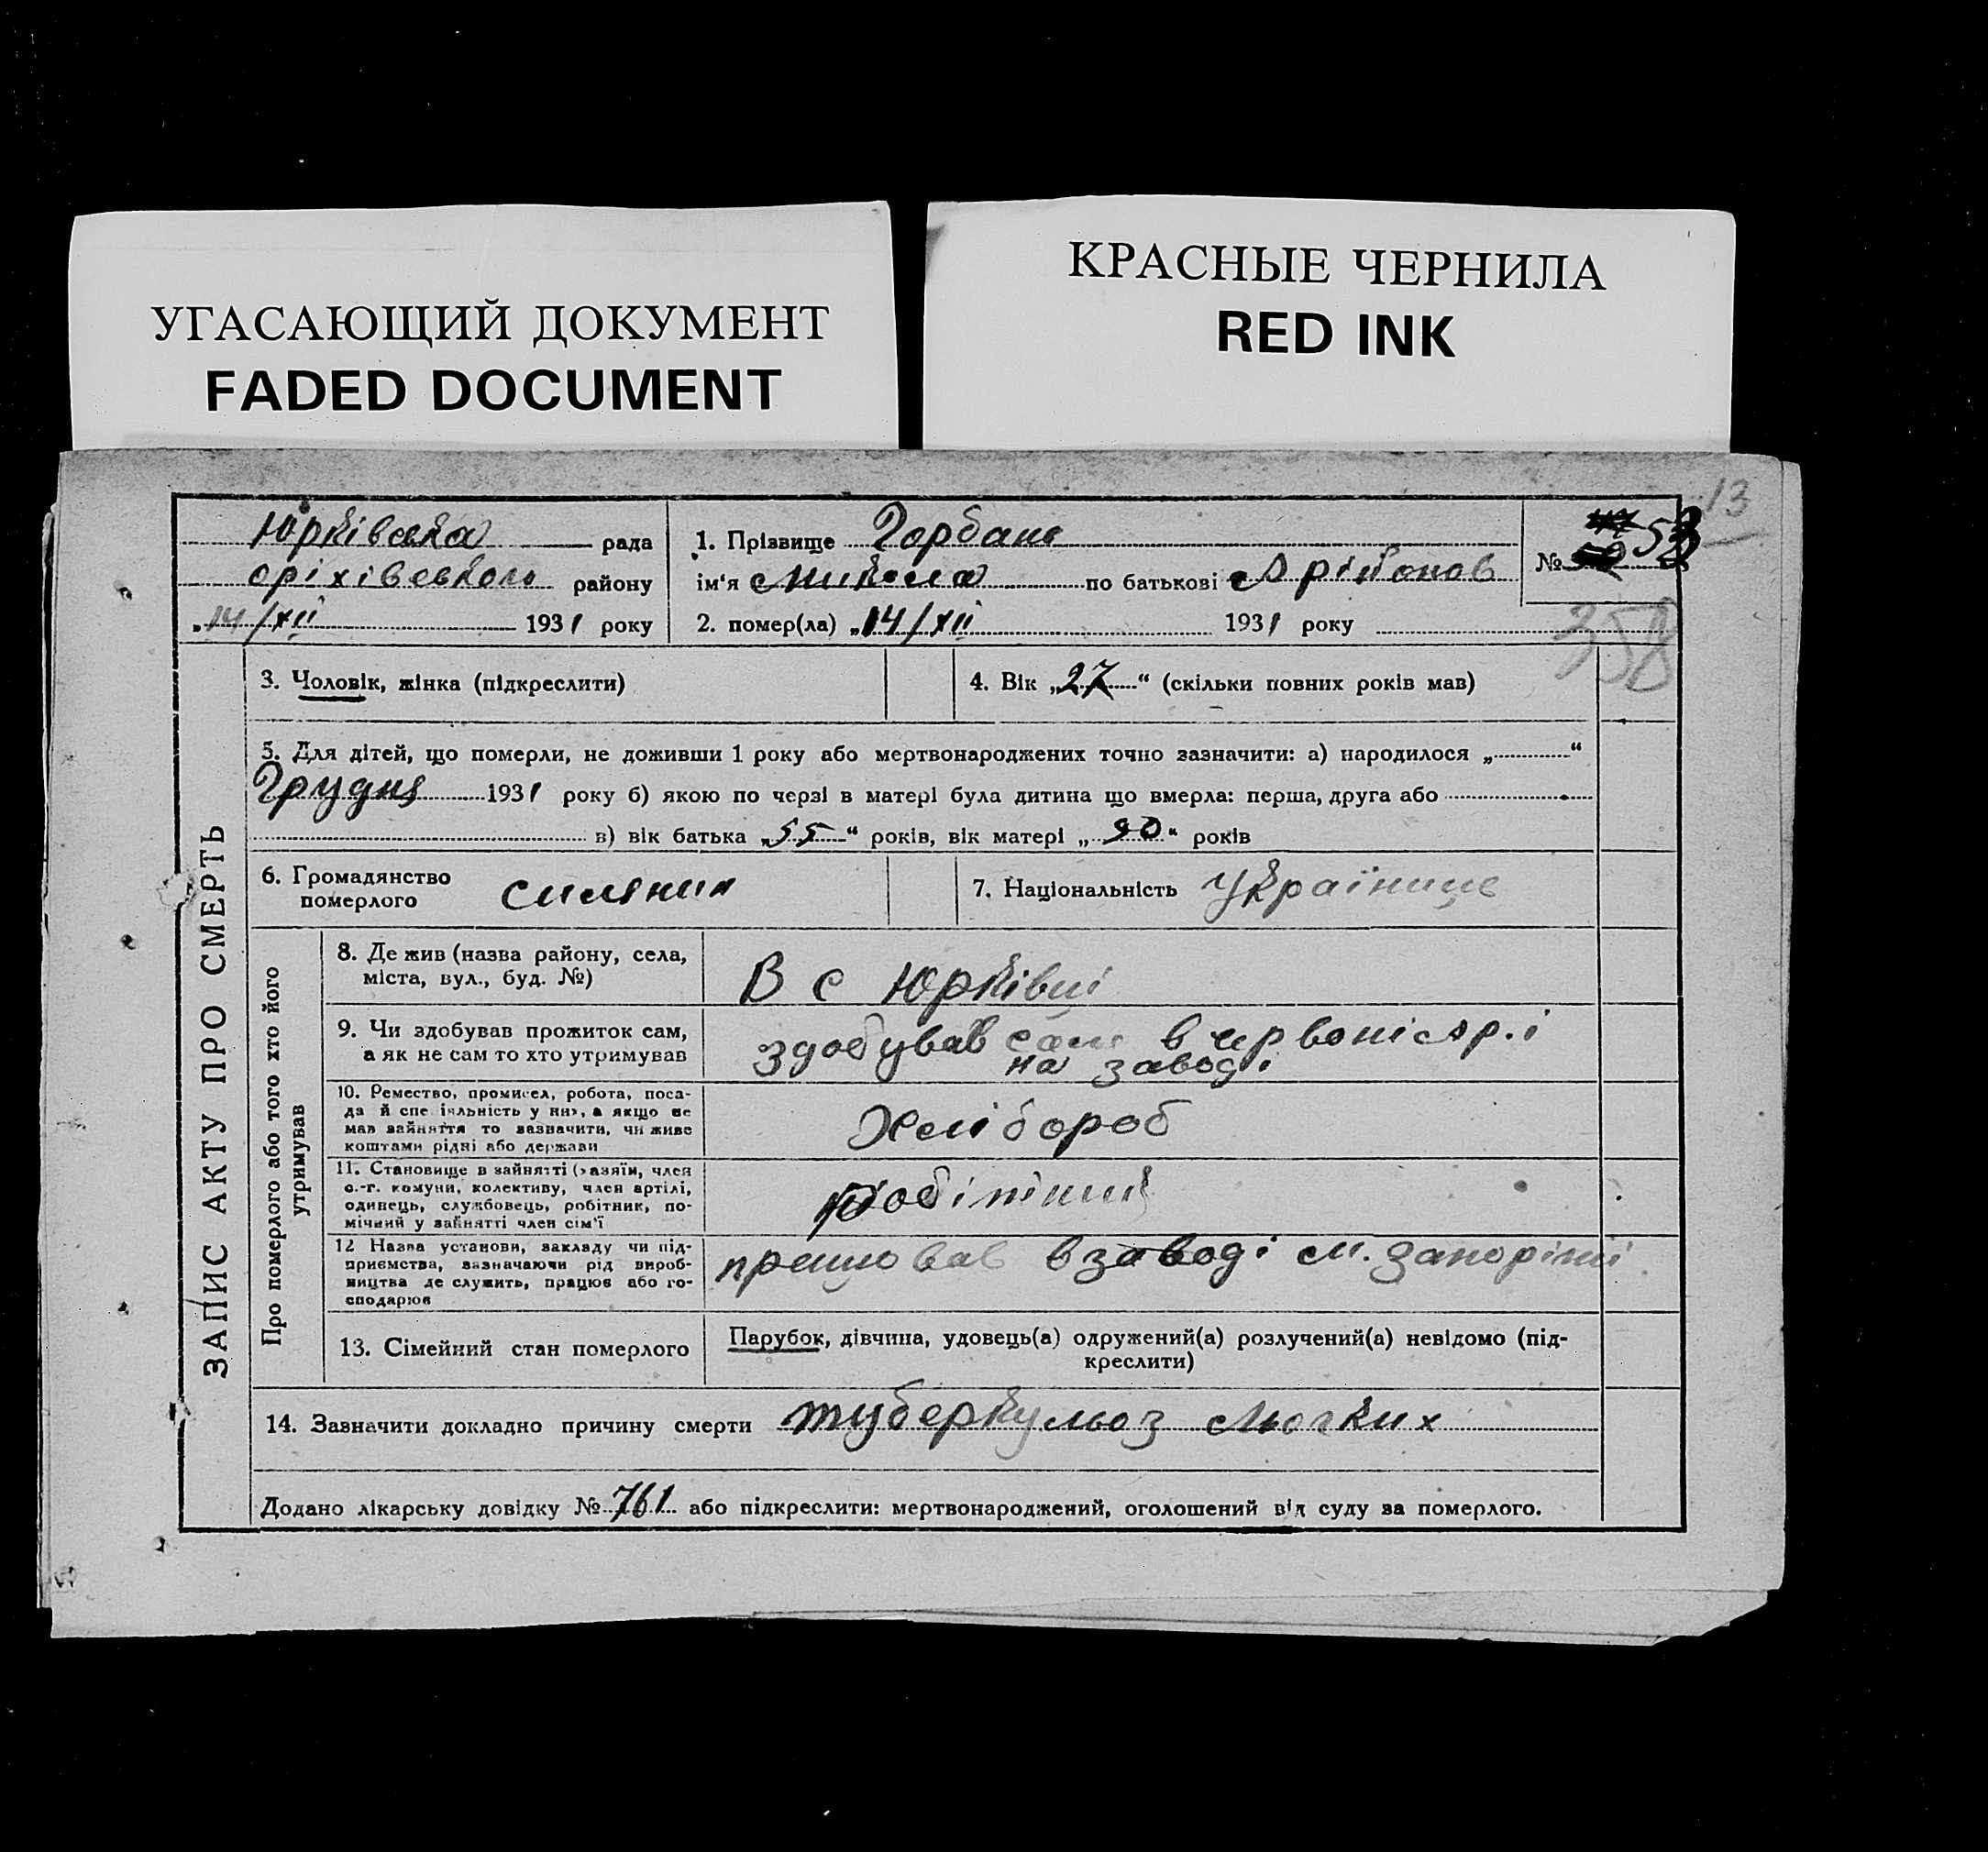 УГАСАЮЩИЙ ДОКУМЕНТ
FADED DOCUMENT
КРАСНЫЕ ЧЕРНИЛА
RED INK
13
Юрківська рада
оріхівського району
„14/XII 1931 року
1. Прізвище Горбань
ім'я Микола по батькові
2. помер(ла) „14/XII 1931 року
№ 53
358
ЗАПИС АКТУ ПРО СМЕРТЬ
3. Чоловік, жінка (підкреслити)
4. Вік „27“ (скільки повних років мав)
5. Для дітей, що померли, не доживши 1 року або мертвонароджених точно зазначити: а) народилося „ “
Грудня 1931 року б) якою по черзі в матері була дитина що вмерла: перша, друга або
в) вік батька „55“ років, вік матері „50“ років
6. Громадянство
померлого
7. Національність Українець
Про померлого або того хто його
утримував
8. Де жив (назва району, села,
міста, вул., буд. №)
В с Юрківці
9. Чи здобував прожиток сам,
а як не сам то хто утримував
здобував сам в
на заводі
10. Ремество, промисел, робота, поса-
да й спеціяльність у них, а якщо не
мав зайняття то зазначити, чи живе
коштами рідні або держави
Хлібороб
11. Становище в зайнятті (хазяїн, член
с.-г. комуни, колективу, член артілі,
одинець, службовець, робітник, по-
мічний у зайнятті член сім'ї
робітник
12 Назва установи, закладу чи під-
приємства, зазначаючи рід вироб-
ництва де служить, працює або го-
сподарює
працював в заводі м. Запоріжжі
13. Сімейний стан померлого
Парубок, дівчина, удовець(а) одружений(а) розлучений(а) невідомо (під-
креслити)
14. Зазначити докладно причину смерти туберкульоз льогких
Додано лікарську довідку № 761 або підкреслити: мертвонароджений, оголошений від суду за померлого.